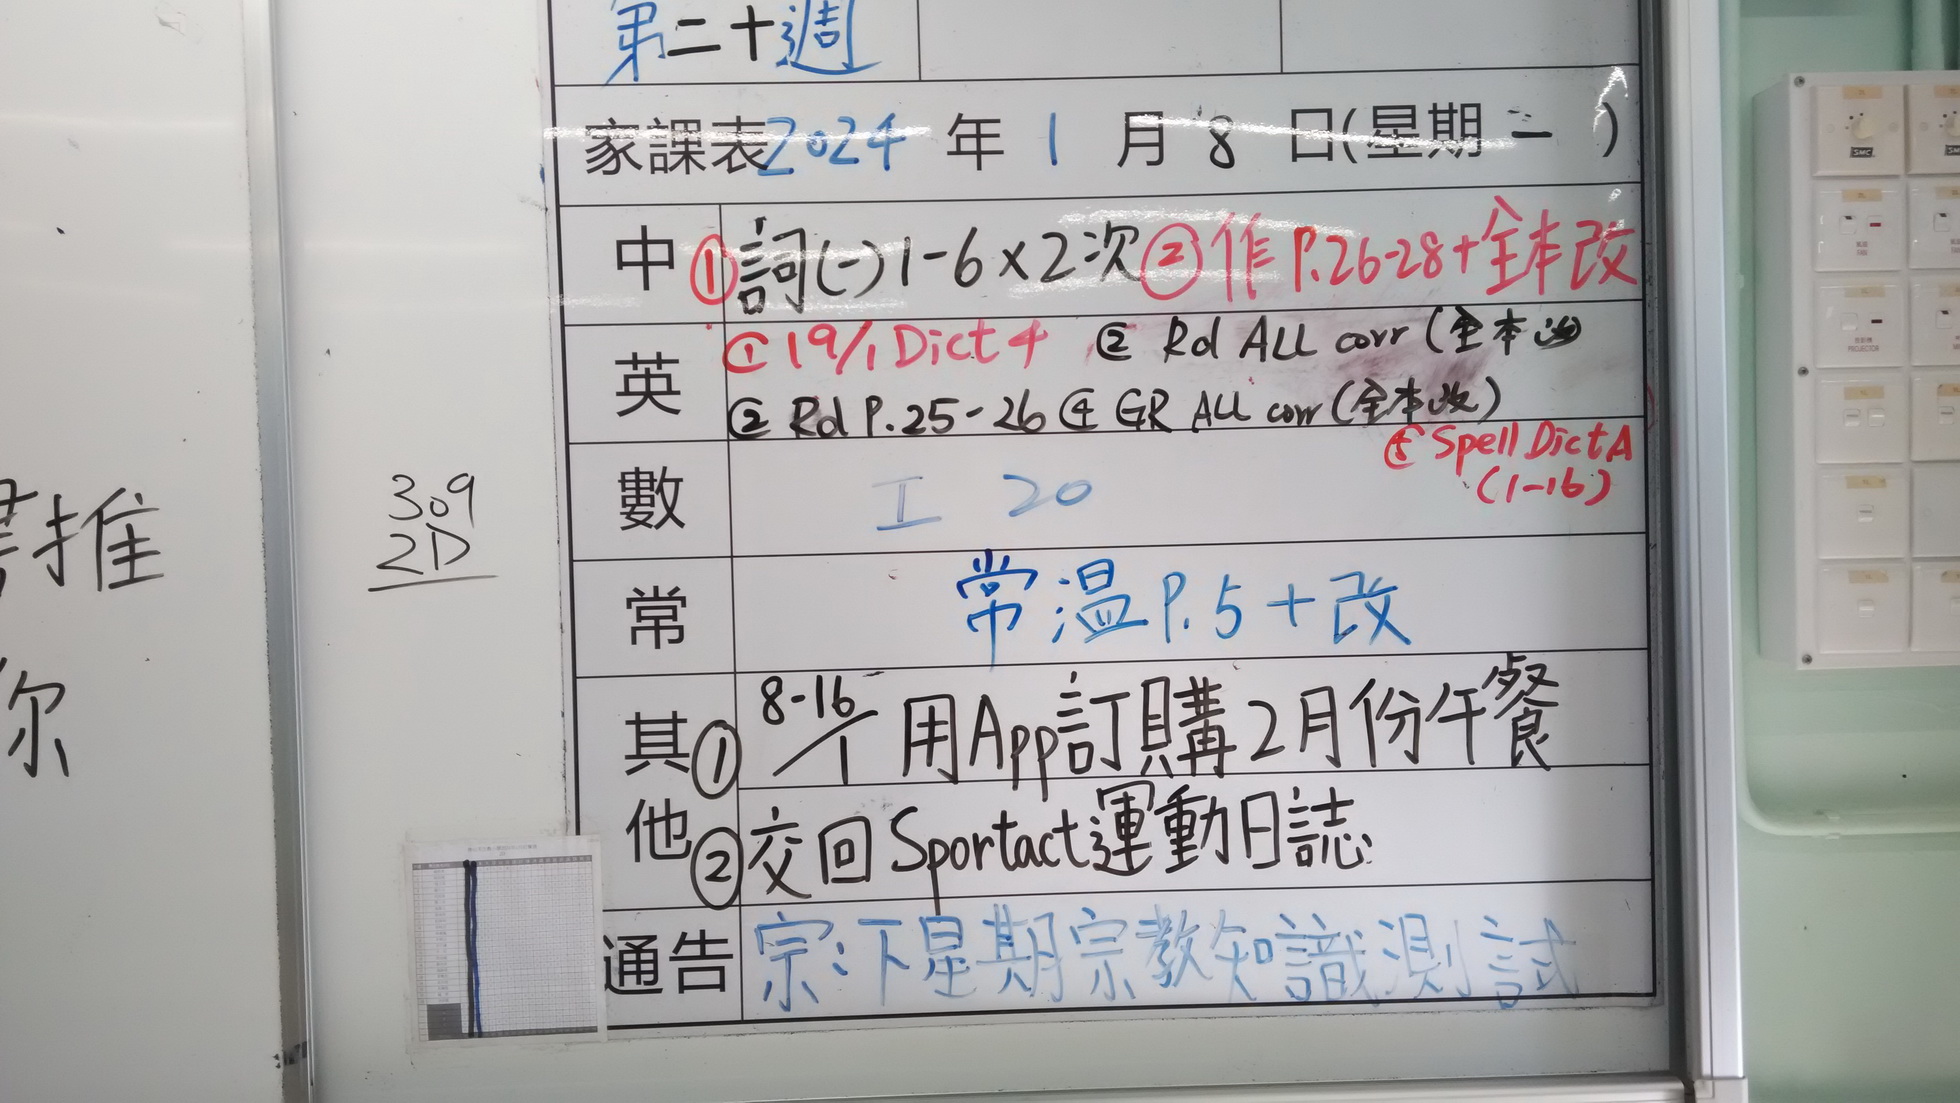 第二十週
家課表2024年1月8日(星期一)
中①詞(一)1-6×2次②作P.26-28+全本改
英 ①19/1 Dict 4 ② Rd ALL corr (全本改
② Rd P.25-26 ④ GR ALL corr (全本改)
⑤ Spell Dict A
(1-16)
數 工 20
常 常溫P.5+改
其他
① 8-16/1 用App訂購2月份午餐
② 交回Sportact運動日誌
通告 宗:下星期宗教知識測試
309
2D
推
你
SMC
PROJECTOR